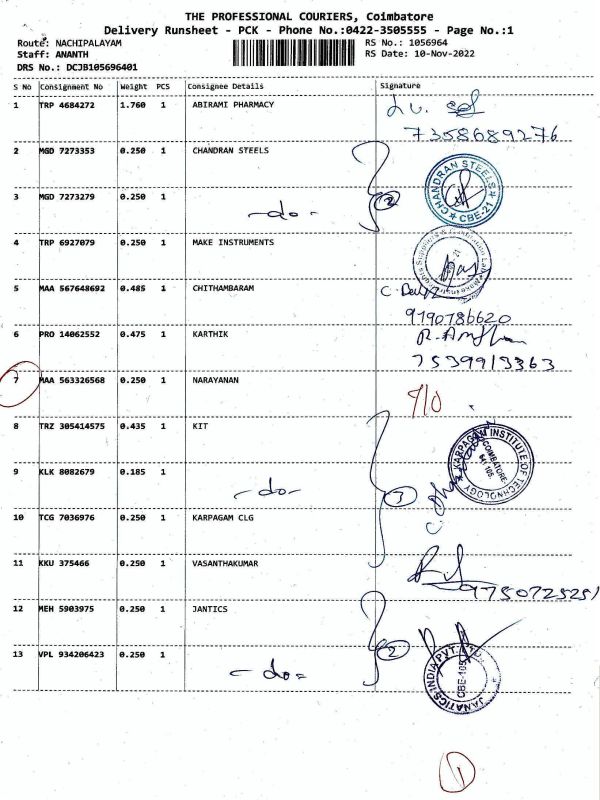 THE PROFESSIONAL COURIERS, Coimbatore
Delivery Runsheet - PCK - Phone No.:0422-3505555 - Page No.:1
Route: NACHIPALAYAM RS No.: 1056964
Staff: ANANTH RS Date: 10-Nov-2022
DRS No.: DCJB105696401
S No Consignment No Weight PCS Consignee Details Signature
1 TRP 4684272 1.760 1 ABIRAMI PHARMACY
7358689276
2 MGD 7273353 0.250 1 CHANDRAN STEELS
CHANDRAN STEELS
CBE-21
3 MGD 7273279 0.250 1
-do- 2
4 TRP 6927079 0.250 1 MAKE INSTRUMENTS
5 MAA 567648692 0.485 1 CHITHAMBARAM
9190786620
6 PRO 14062552 0.475 1 KARTHIK
7539913363
7 MAA 563326568 0.250 1 NARAYANAN
8 TRZ 305414575 0.435 1 KIT
KARPAGAM INSTITUTE OF TECHNOLOGY
COIMBATORE
641 105
9 KLK 8082679 0.185 1
-do- 3
10 TCG 7036976 0.250 1 KARPAGAM CLG
11 KKU 375466 0.250 1 VASANTHAKUMAR
9750725251
12 MEH 5903975 0.250 1 JANTICS
2
13 VPL 934206423 0.250 1
-do-
JANATICS INDIA PVT. LTD.
CBE-105
1